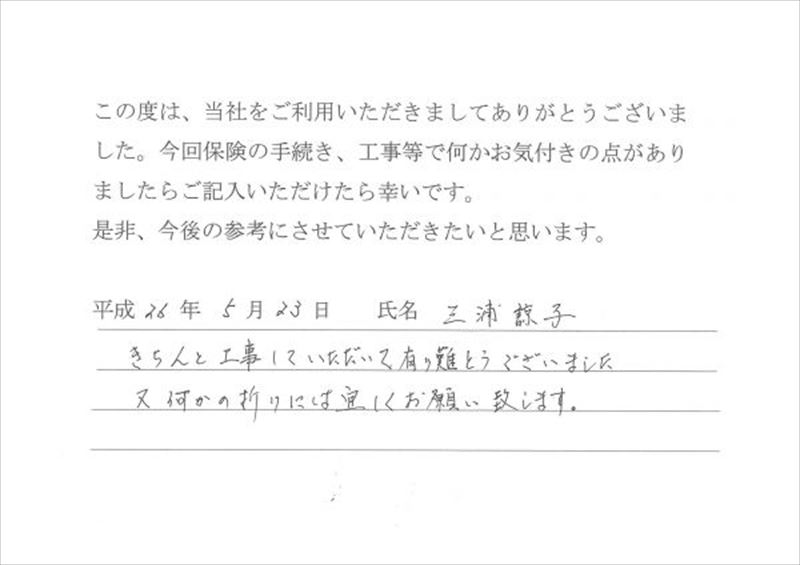 この度は、当社をご利用いただきましてありがとうございま
した。今回保険の手続き、工事等で何かお気付きの点があり
ましたらご記入いただけたら幸いです。
是非、今後の参考にさせていただきたいと思います。
平成 26 年 5 月 23 日 氏名 三浦諒子
きちんと工事していただいて有り難とうございました
又何かの折りには宜しくお願い致します。